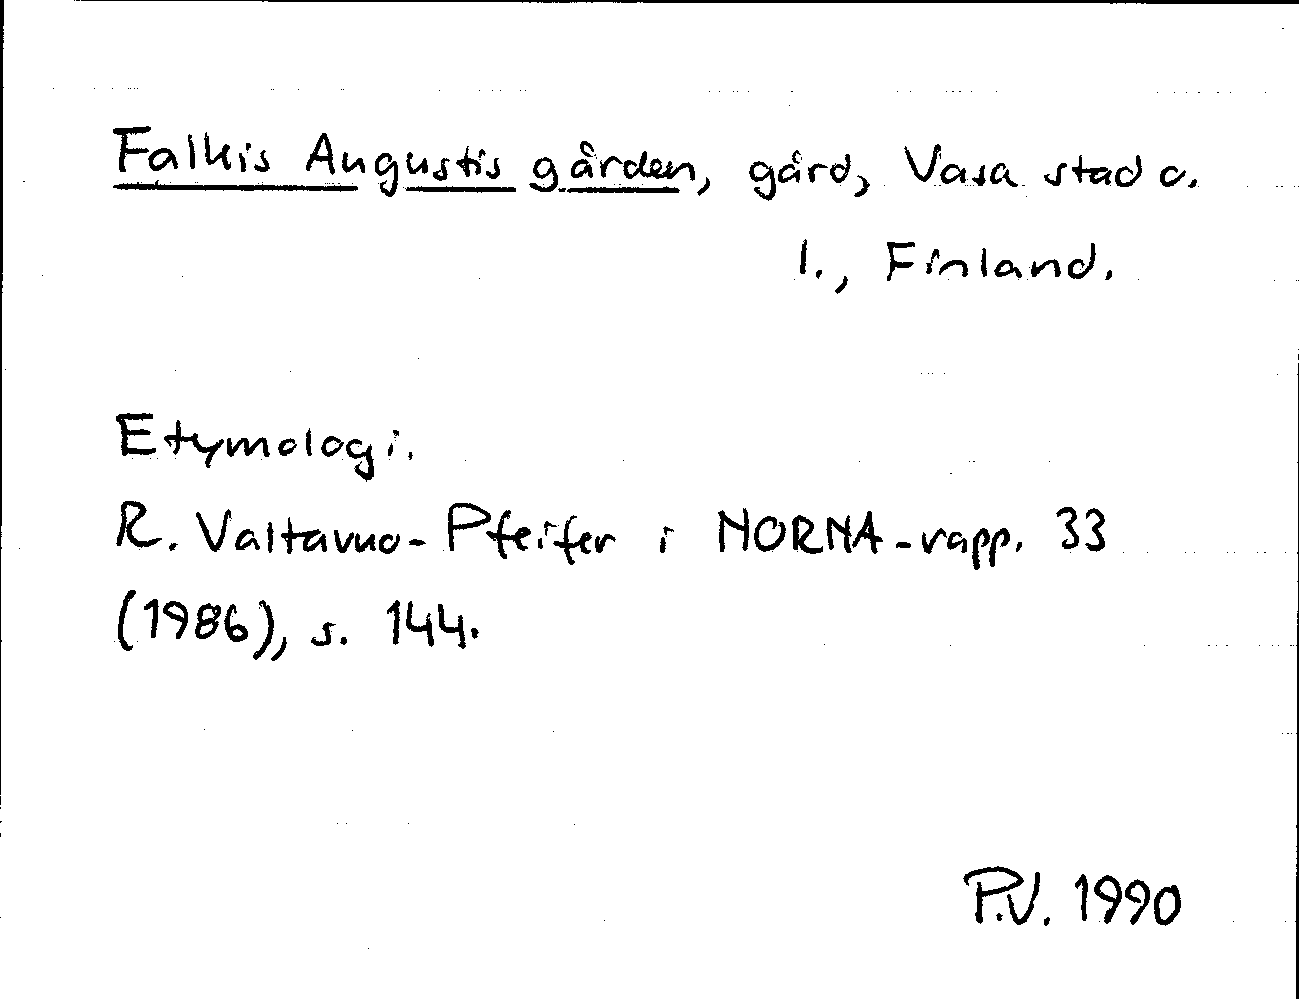 Falkis Augustis gården, gård, Vasa stad o.
l., Finland.
Etymologi.
R. Valtavuo-Pfeifer i NORNA-rapp. 33
(1986), s. 144.
P.V. 1990